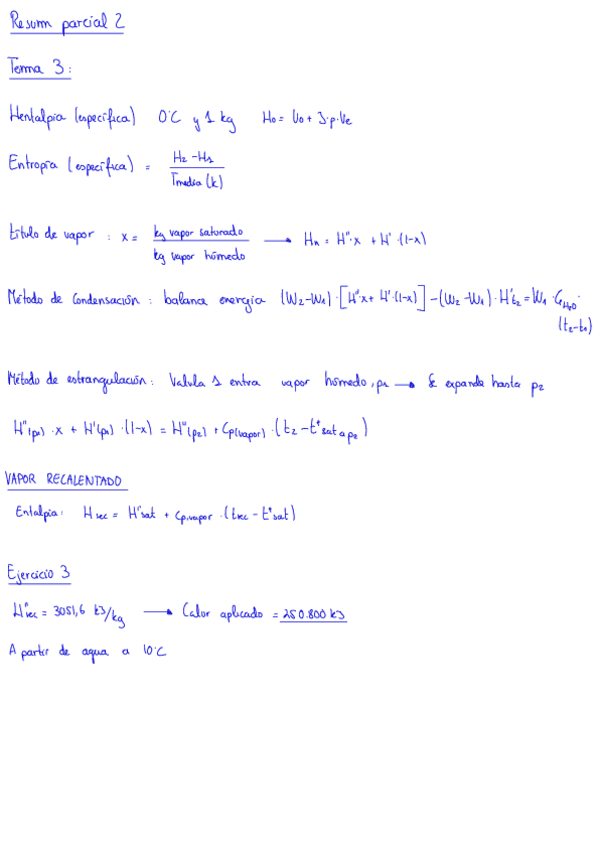 Resum parcial 2
Tema 3:
Hentalpia (específica) 0°C y 1 kg Ho = Uo + J·p·Ve
Entropía (específica) = H2 - H1 / Tmedia (K)
título de vapor : x = kg vapor saturado / kg vapor húmedo → Hx = H''·x + H'·(1-x)
Método de condensación : balanç energia (W2-W1)·[H''·x + H'·(1-x)] - (W2-W1)·H't2 = W1·CH2O·
(t2-t1)
Método de estrangulación: Valvula 1 entra vapor húmedo, p1 → Se expande hasta p2
H''(p1)·x + H'(p1)·(1-x) = H''(p2) + Cp(vapor)·(t2 - t*sat a p2)
VAPOR RECALENTADO
Entalpia: Hrec = H''sat + Cp,vapor·(trec - t*sat)
Ejercicio 3
H''rec = 3051,6 kJ/kg → Calor aplicado = 250.800 kJ
A partir de agua a 10°C